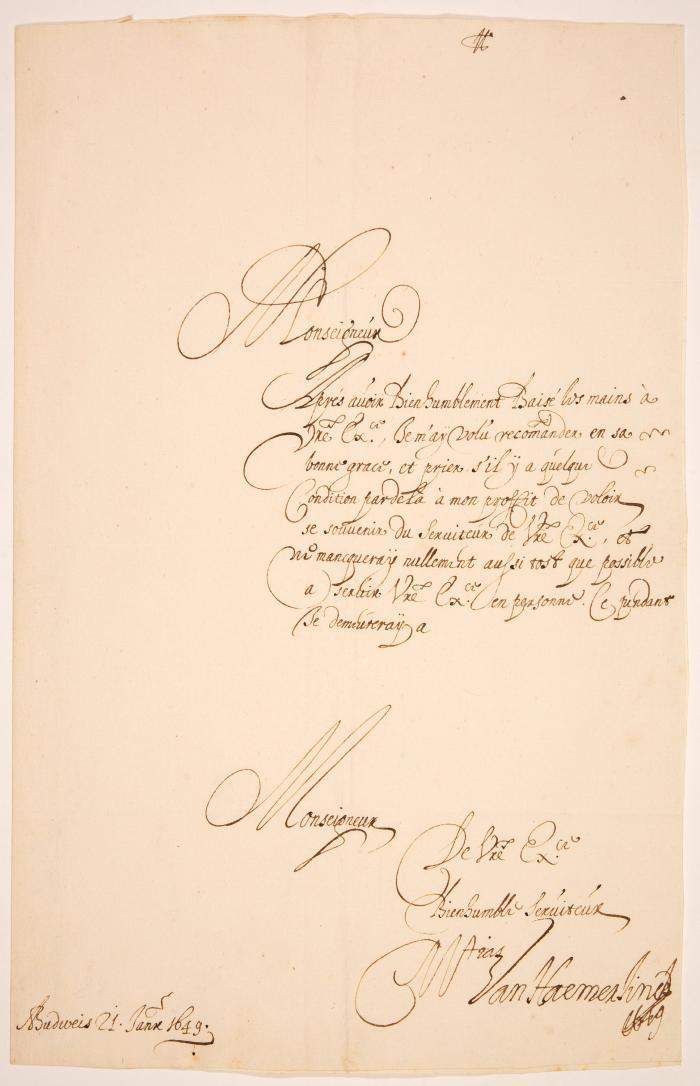 Monseigneur
Aprés avoir Bien humblement Baisé les mains à
Vre Exce, Je m'ay volu recomander en sa
bonne grace, et prier s'il y a quelque
Condition pardela à mon proffit de voloir
se souvenir du Serviteur de Vre Exce, et
ne mancqueray nullement aussi tost que possible
a servir Vre Exce en personne. Ce pendant
Je demeureray a
Monseigneur
De Vre Exce
Bien humble Serviteur
Van
Budweis 21. Janr 1649.